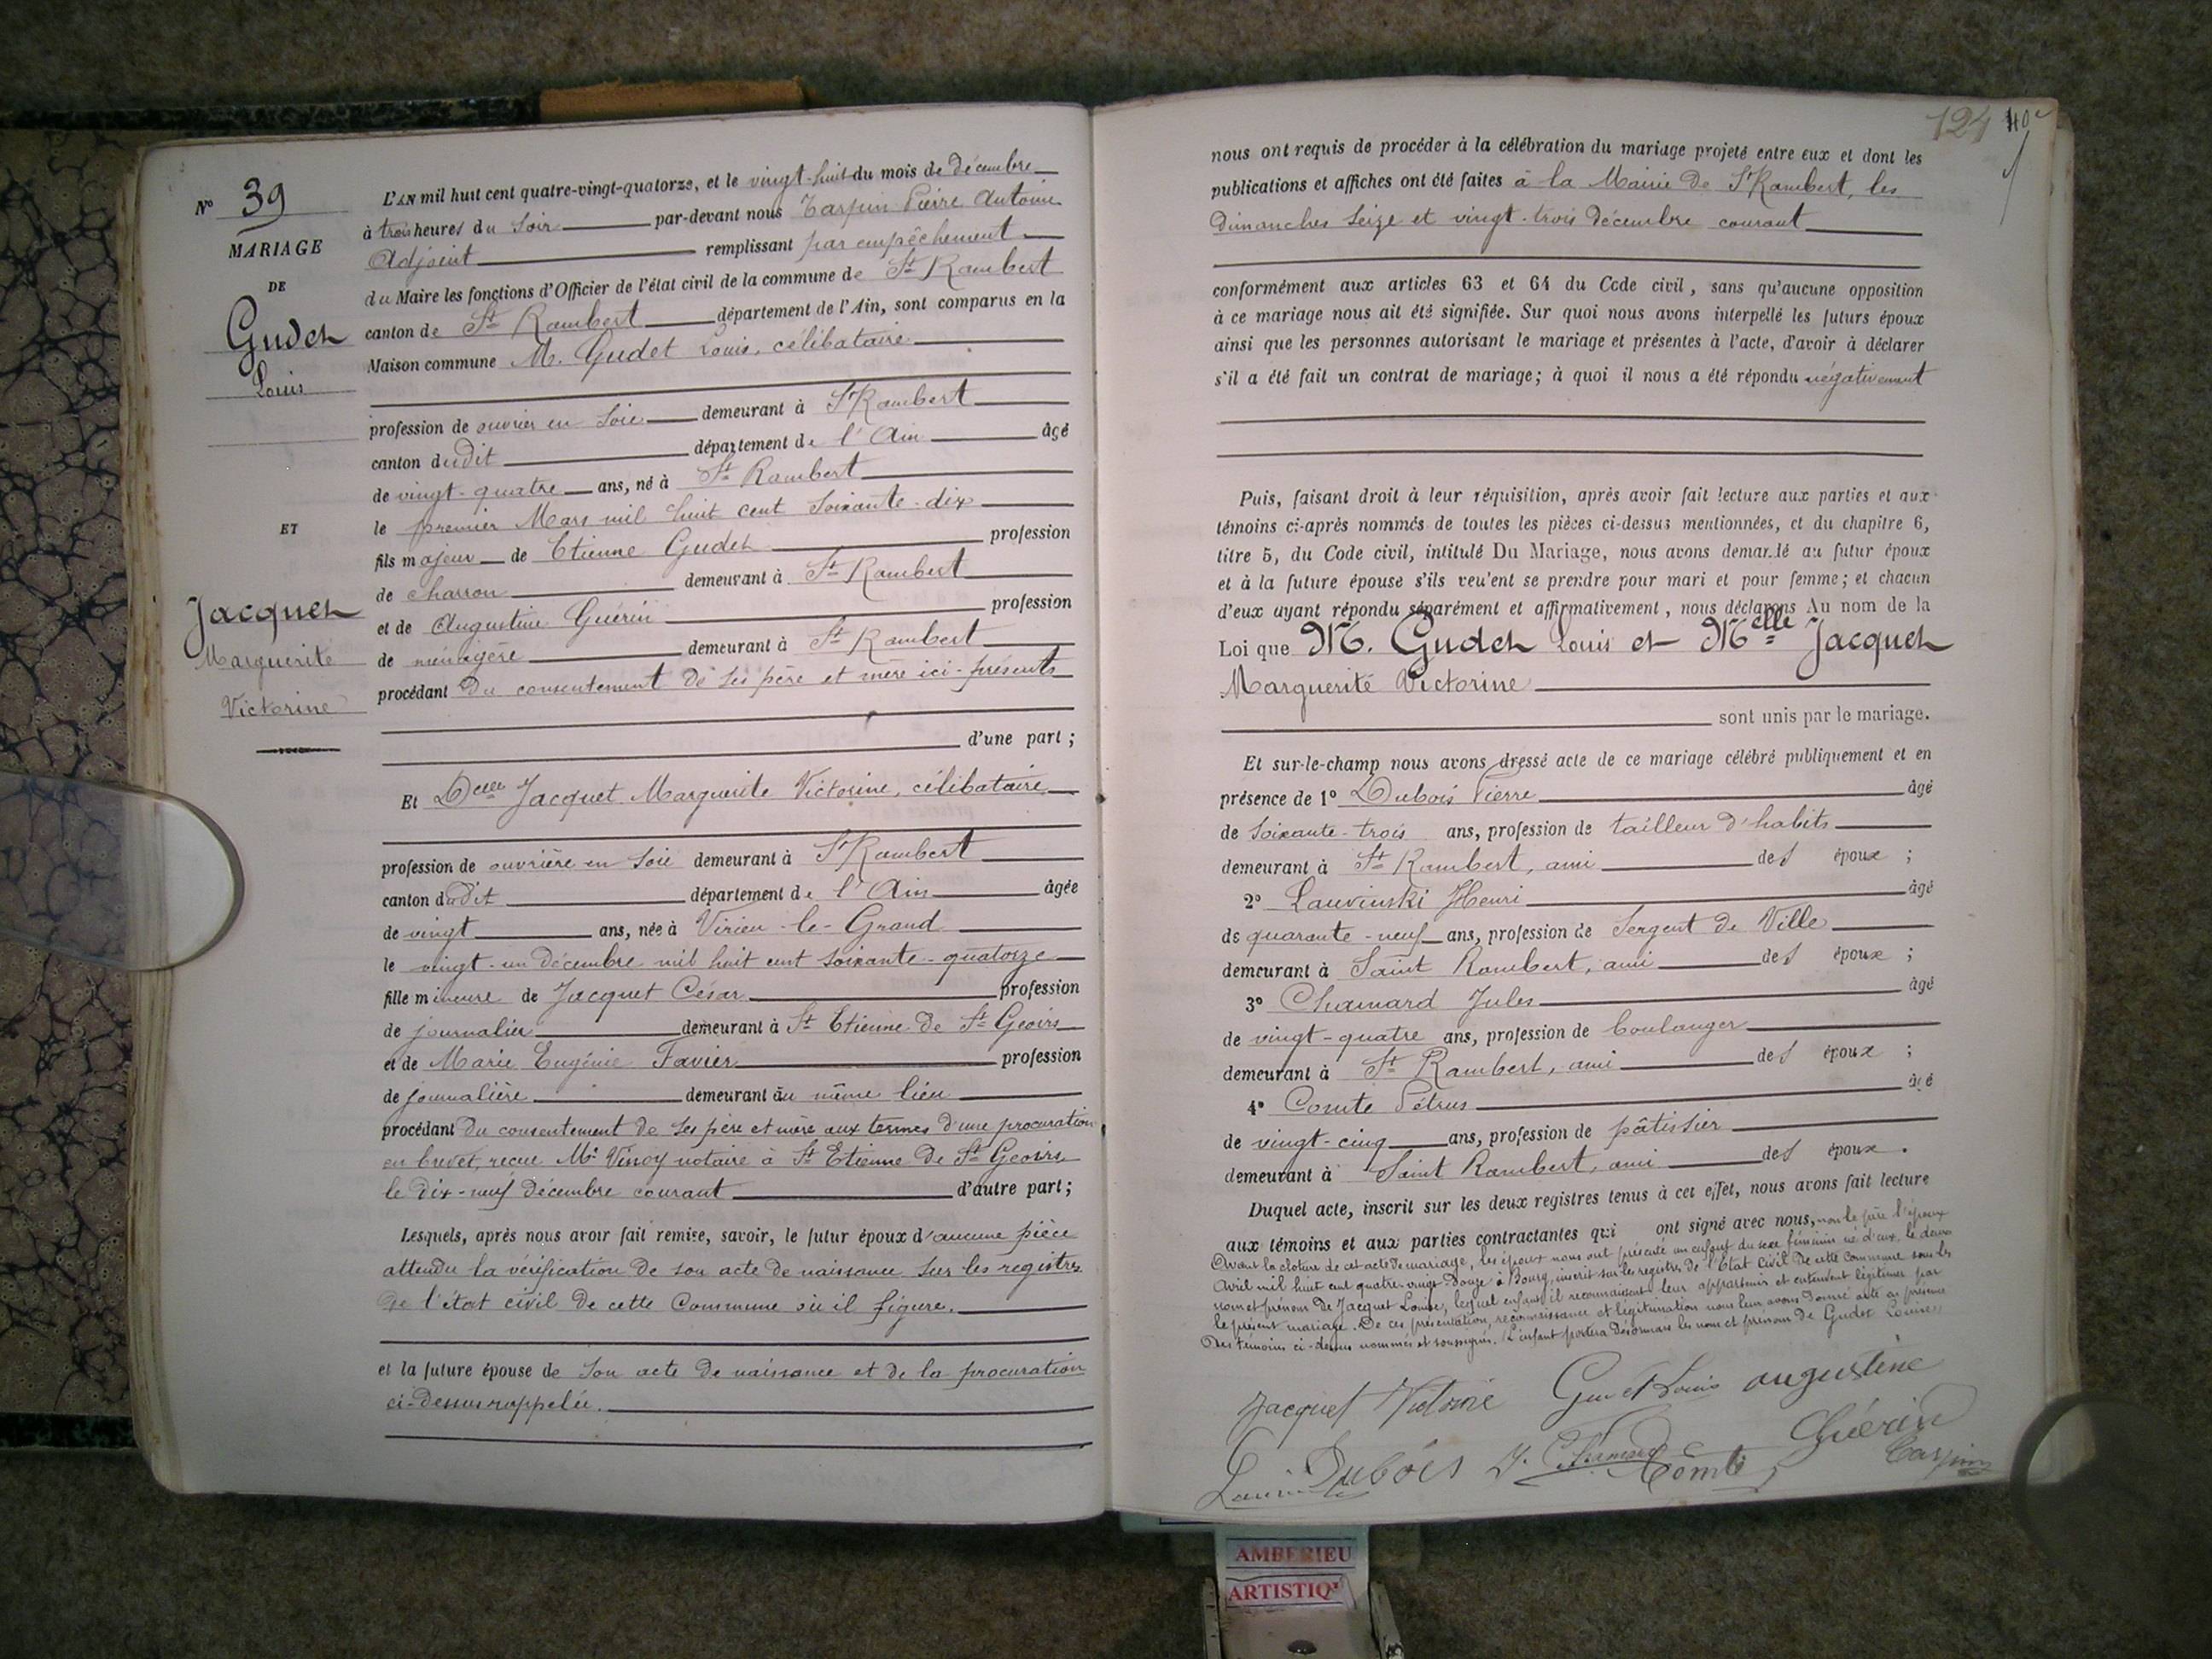 N° 39
MARIAGE
DE
Gudet
Louis
ET
Jacquet
Marguerite
Victorine
L'AN mil huit cent quatre-vingt-quatorze, et le vingt-huit du mois de décembre
à trois heures du soir par-devant nous Tarpin Pierre Antoine
Adjoint remplissant par empêchement
du Maire les fonctions d'Officier de l'état civil de la commune de St Rambert
canton de St Rambert département de l'Ain, sont comparus en la
Maison commune M. Gudet Louis, célibataire
profession de ouvrier en soie demeurant à St Rambert
canton dudit département de l'Ain âgé
de vingt-quatre ans, né à St Rambert
le premier Mars mil huit cent soixante-dix
fils majeur de Etienne Gudet profession
de charron demeurant à St Rambert
et de Augustine Guérin profession
de ménagère demeurant à St Rambert
procédant du consentement de ses père et mère ici-présents
d'une part ;
Et Delle Jacquet Marguerite Victorine, célibataire
profession de ouvrière en soie demeurant à St Rambert
canton dudit département de l'Ain âgée
de vingt ans, née à Virieu-le-Grand
le vingt-un décembre mil huit cent soixante-quatorze
fille mineure de Jacquet César profession
de journalier demeurant à St Etienne de St Geoirs
et de Marie Eugénie Favier profession
de journalière demeurant au même lieu
procédant du consentement de ses père et mère aux termes d'une procuration
en brevet, reçue Me Vinoy notaire à St Etienne de St Geoirs
le dix-neuf décembre courant d'autre part ;
Lesquels, après nous avoir fait remise, savoir, le futur époux d'aucune pièce
attendu la vérification de son acte de naissance sur les registres
de l'état civil de cette Commune où il figure.
et la future épouse de son acte de naissance et de la procuration
ci-dessus rappelée.
124 40e
nous ont requis de procéder à la célébration du mariage projeté entre eux et dont les
publications et affiches ont été faites à la Mairie de St Rambert, les
dimanches seize et vingt-trois décembre courant
conformément aux articles 63 et 64 du Code civil, sans qu'aucune opposition
à ce mariage nous ait été signifiée. Sur quoi nous avons interpellé les futurs époux
ainsi que les personnes autorisant le mariage et présentes à l'acte, d'avoir à déclarer
s'il a été fait un contrat de mariage ; à quoi il nous a été répondu négativement
Puis, faisant droit à leur réquisition, après avoir fait lecture aux parties et aux
témoins ci-après nommés de toutes les pièces ci-dessus mentionnées, et du chapitre 6,
titre 5, du Code civil, intitulé Du Mariage, nous avons demandé au futur époux
et à la future épouse s'ils veulent se prendre pour mari et pour femme ; et chacun
d'eux ayant répondu séparément et affirmativement, nous déclarons Au nom de la
Loi que M. Gudet Louis et Melle Jacquet
Marguerite Victorine
sont unis par le mariage.
Et sur-le-champ nous avons dressé acte de ce mariage célébré publiquement et en
présence de 1° Dubois Pierre âgé
de soixante-trois ans, profession de tailleur d'habits
demeurant à St Rambert, ami des époux ;
2° Lauvinski Henri âgé
de quarante-neuf ans, profession de Sergent de Ville
demeurant à Saint Rambert, ami des époux ;
3° Chamard Jules âgé
de vingt-quatre ans, profession de boulanger
demeurant à St Rambert, ami des époux ;
4° Comte Pétrus âgé
de vingt-cinq ans, profession de pâtissier
demeurant à Saint Rambert, ami des époux.
Duquel acte, inscrit sur les deux registres tenus à cet effet, nous avons fait lecture
aux témoins et aux parties contractantes qui ont signé avec nous, non le père l'époux
Avant la cloture de cet acte de mariage, les époux nous ont présenté un enfant du sexe féminin né d'eux, le deux
Avril mil huit cent quatre-vingt-douze à Bourg, inscrit sur les registres de l'Etat civil de cette commune sous les
nom et prénom de Jacquet Louise, lequel enfant il reconnaissent leur appartenir et entendent légitimer par
le présent mariage. De ces présentation, reconnaissance et légitimation nous leur avons donné acte en présence
des témoins ci-dessus nommés et soussignés. L'enfant portera désormais les nom et prénom de Gudet Louise.
Jacquet Victorine Gudet Louis augustine
Guérin
Dubois J. Chamard Comte Tarpin
AMBERIEU
ARTISTIQ